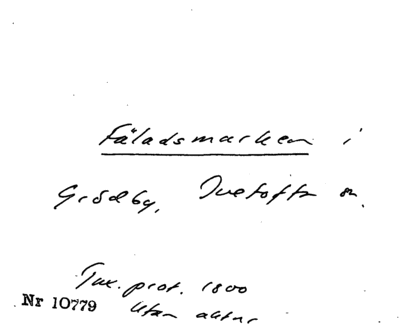 Fäladsmarken i
Grödby, Tvetofta sn.
Tax. prot. 1800
Nr 10779 utan aktnr